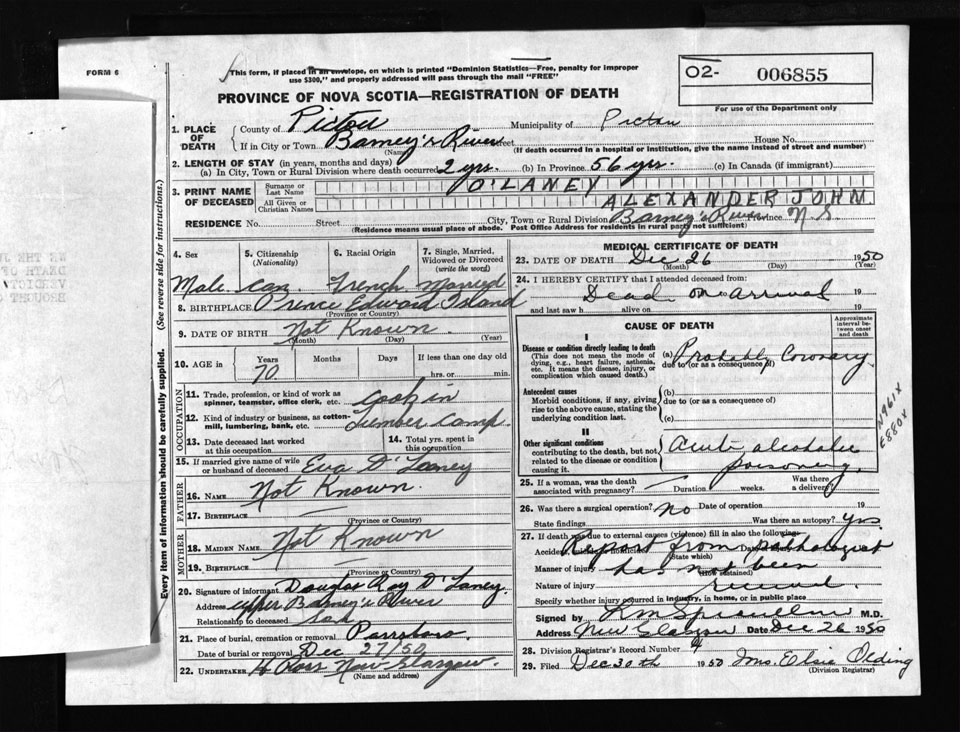 FORM 6
This form, if placed in an envelope, on which is printed "Dominion Statistics—Free, penalty for improper
use $300," and properly addressed will pass through the mail "FREE"
PROVINCE OF NOVA SCOTIA—REGISTRATION OF DEATH
O2- 006855
For use of the Department only
1. PLACE OF DEATH County of Pictou Municipality of Pictou
If in City or Town Barney's River Street House No.
(Name) (If death occurred in a hospital or institution, give the name instead of street and number)
2. LENGTH OF STAY (in years, months and days)
(a) In City, Town or Rural Division where death occurred 2 yrs. (b) In Province 56 yrs. (c) In Canada (if immigrant)
3. PRINT NAME OF DECEASED Surname or Last Name O'LANEY
All Given or Christian Names ALEXANDER JOHN
RESIDENCE No. Street City, Town or Rural Division Barney's River Province N.S.
(Residence means usual place of abode. Post Office Address for residents in rural parts not sufficient)
(See reverse side for instructions.)
Every item of information should be carefully supplied.
4. Sex 5. Citizenship (Nationality) 6. Racial Origin 7. Single, Married, Widowed or Divorced (write the word)
Male Can French Married
8. BIRTHPLACE Prince Edward Island
(Province or Country)
9. DATE OF BIRTH Not Known.
(Month) (Day) (Year)
10. AGE in Years Months Days If less than one day old
70 hrs. or min.
OCCUPATION
11. Trade, profession, or kind of work as spinner, teamster, office clerk, etc. Cook in
12. Kind of industry or business, as cotton-mill, lumbering, bank, etc. Lumber Camp.
13. Date deceased last worked at this occupation
14. Total yrs. spent in this occupation
15. If married give name of wife or husband of deceased Eva O'Laney
FATHER
16. NAME Not Known.
17. BIRTHPLACE
(Province or Country)
MOTHER
18. MAIDEN NAME Not Known
19. BIRTHPLACE
(Province or Country)
20. Signature of informant Douglas Ray O'Laney.
Address Upper Barney's River
Relationship to deceased son
21. Place of burial, cremation or removal Parrsboro.
Date of burial or removal Dec 27/50
22. UNDERTAKER H Ross New Glasgow.
(Name and address)
MEDICAL CERTIFICATE OF DEATH
23. DATE OF DEATH Dec 26 1950
(Month) (Day) (Year)
24. I HEREBY CERTIFY that I attended deceased from:
Dead on arrival 19
and last saw h alive on 19
CAUSE OF DEATH
Approximate interval between onset and death
I
Disease or condition directly leading to death
(This does not mean the mode of dying, e.g., heart failure, asthenia, etc. It means the disease, injury, or complication which caused death.)
(a) Probably Coronary
due to (or as a consequence of)
Antecedent causes
Morbid conditions, if any, giving rise to the above cause, stating the underlying condition last.
(b)
due to (or as a consequence of)
(c)
II
Other significant conditions
contributing to the death, but not related to the disease or condition causing it.
Acute alcoholic
poisoning.
N961X
E880X
25. If a woman, was the death associated with pregnancy? Duration weeks. Was there a delivery?
26. Was there a surgical operation? No Date of operation 19
State findings Was there an autopsy? yes.
27. If death was due to external causes (violence) fill in also the following:
Report from pathologist
(State which)
Manner of injury has not been
(How sustained)
Nature of injury received
Specify whether injury occurred in industry, in home, or in public place
Signed by M.D.
Address New Glasgow Date Dec 26 1950
28. Division Registrar's Record Number 9
29. Filed Dec 30th 1950 Mrs. Elsie Olding
(Division Registrar)